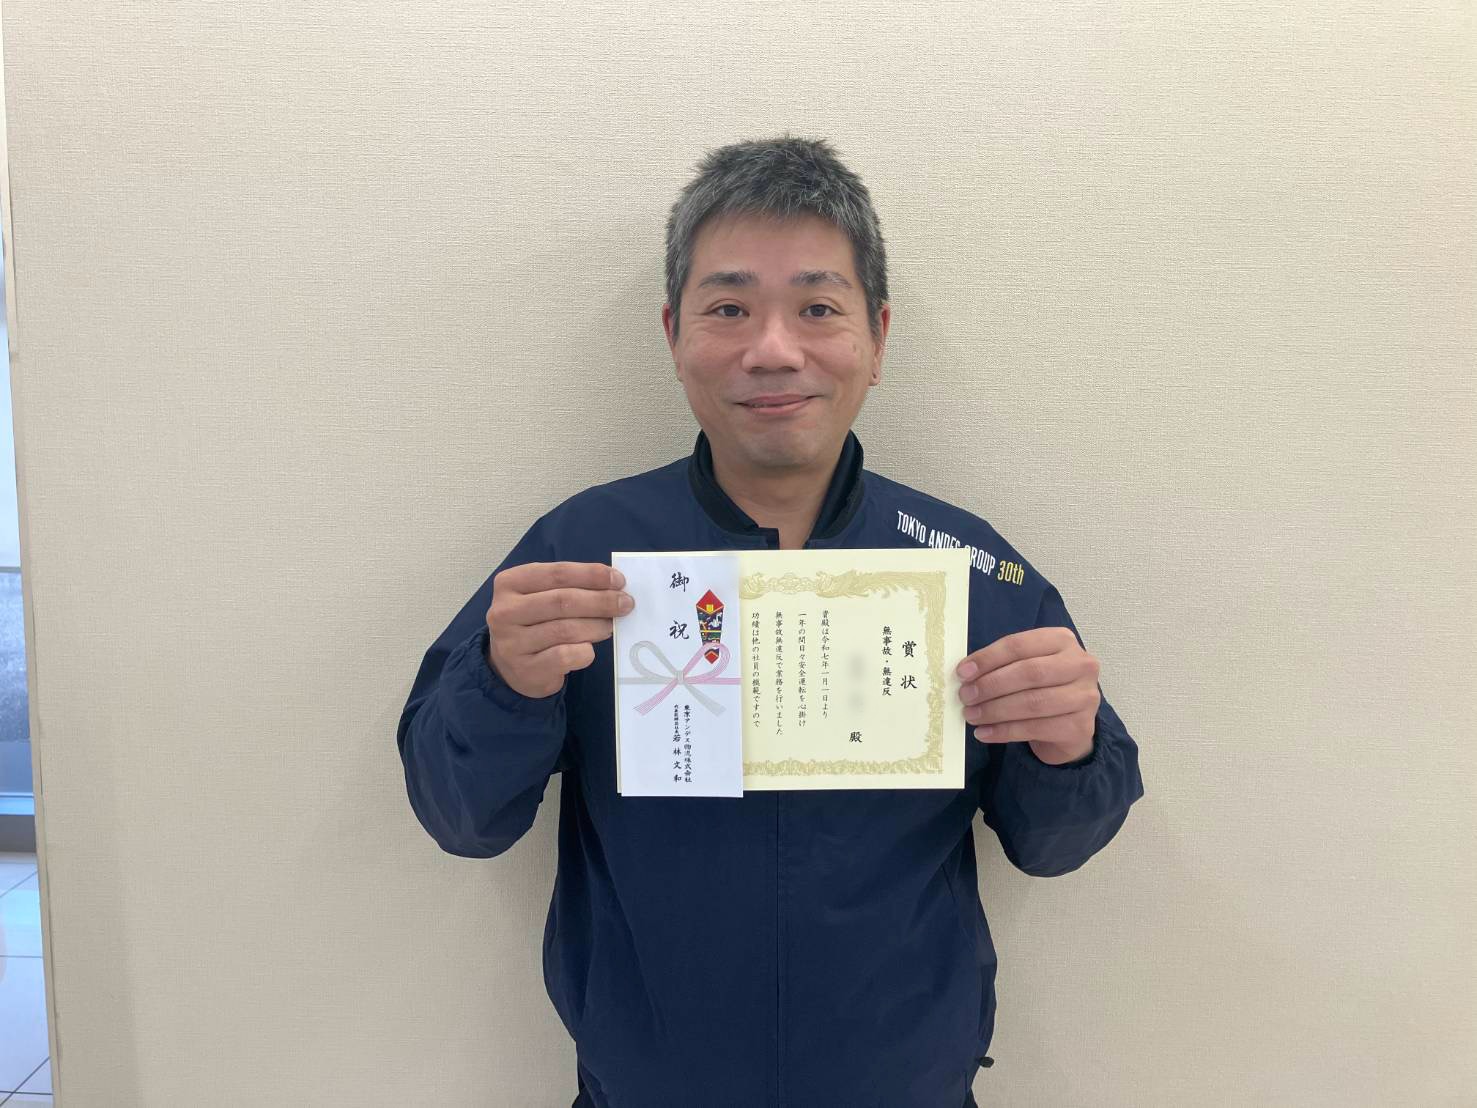 TOKYO ANDES GROUP 30th
賞状
無事故・無違反
殿
貴殿は令和七年一月一日より
一年の間日々安全運転を心掛け
無事故無違反で業務を行いました
功績は他の社員の模範ですので
御祝
東京アンデス物流株式会社
代表取締役社長 若林文和